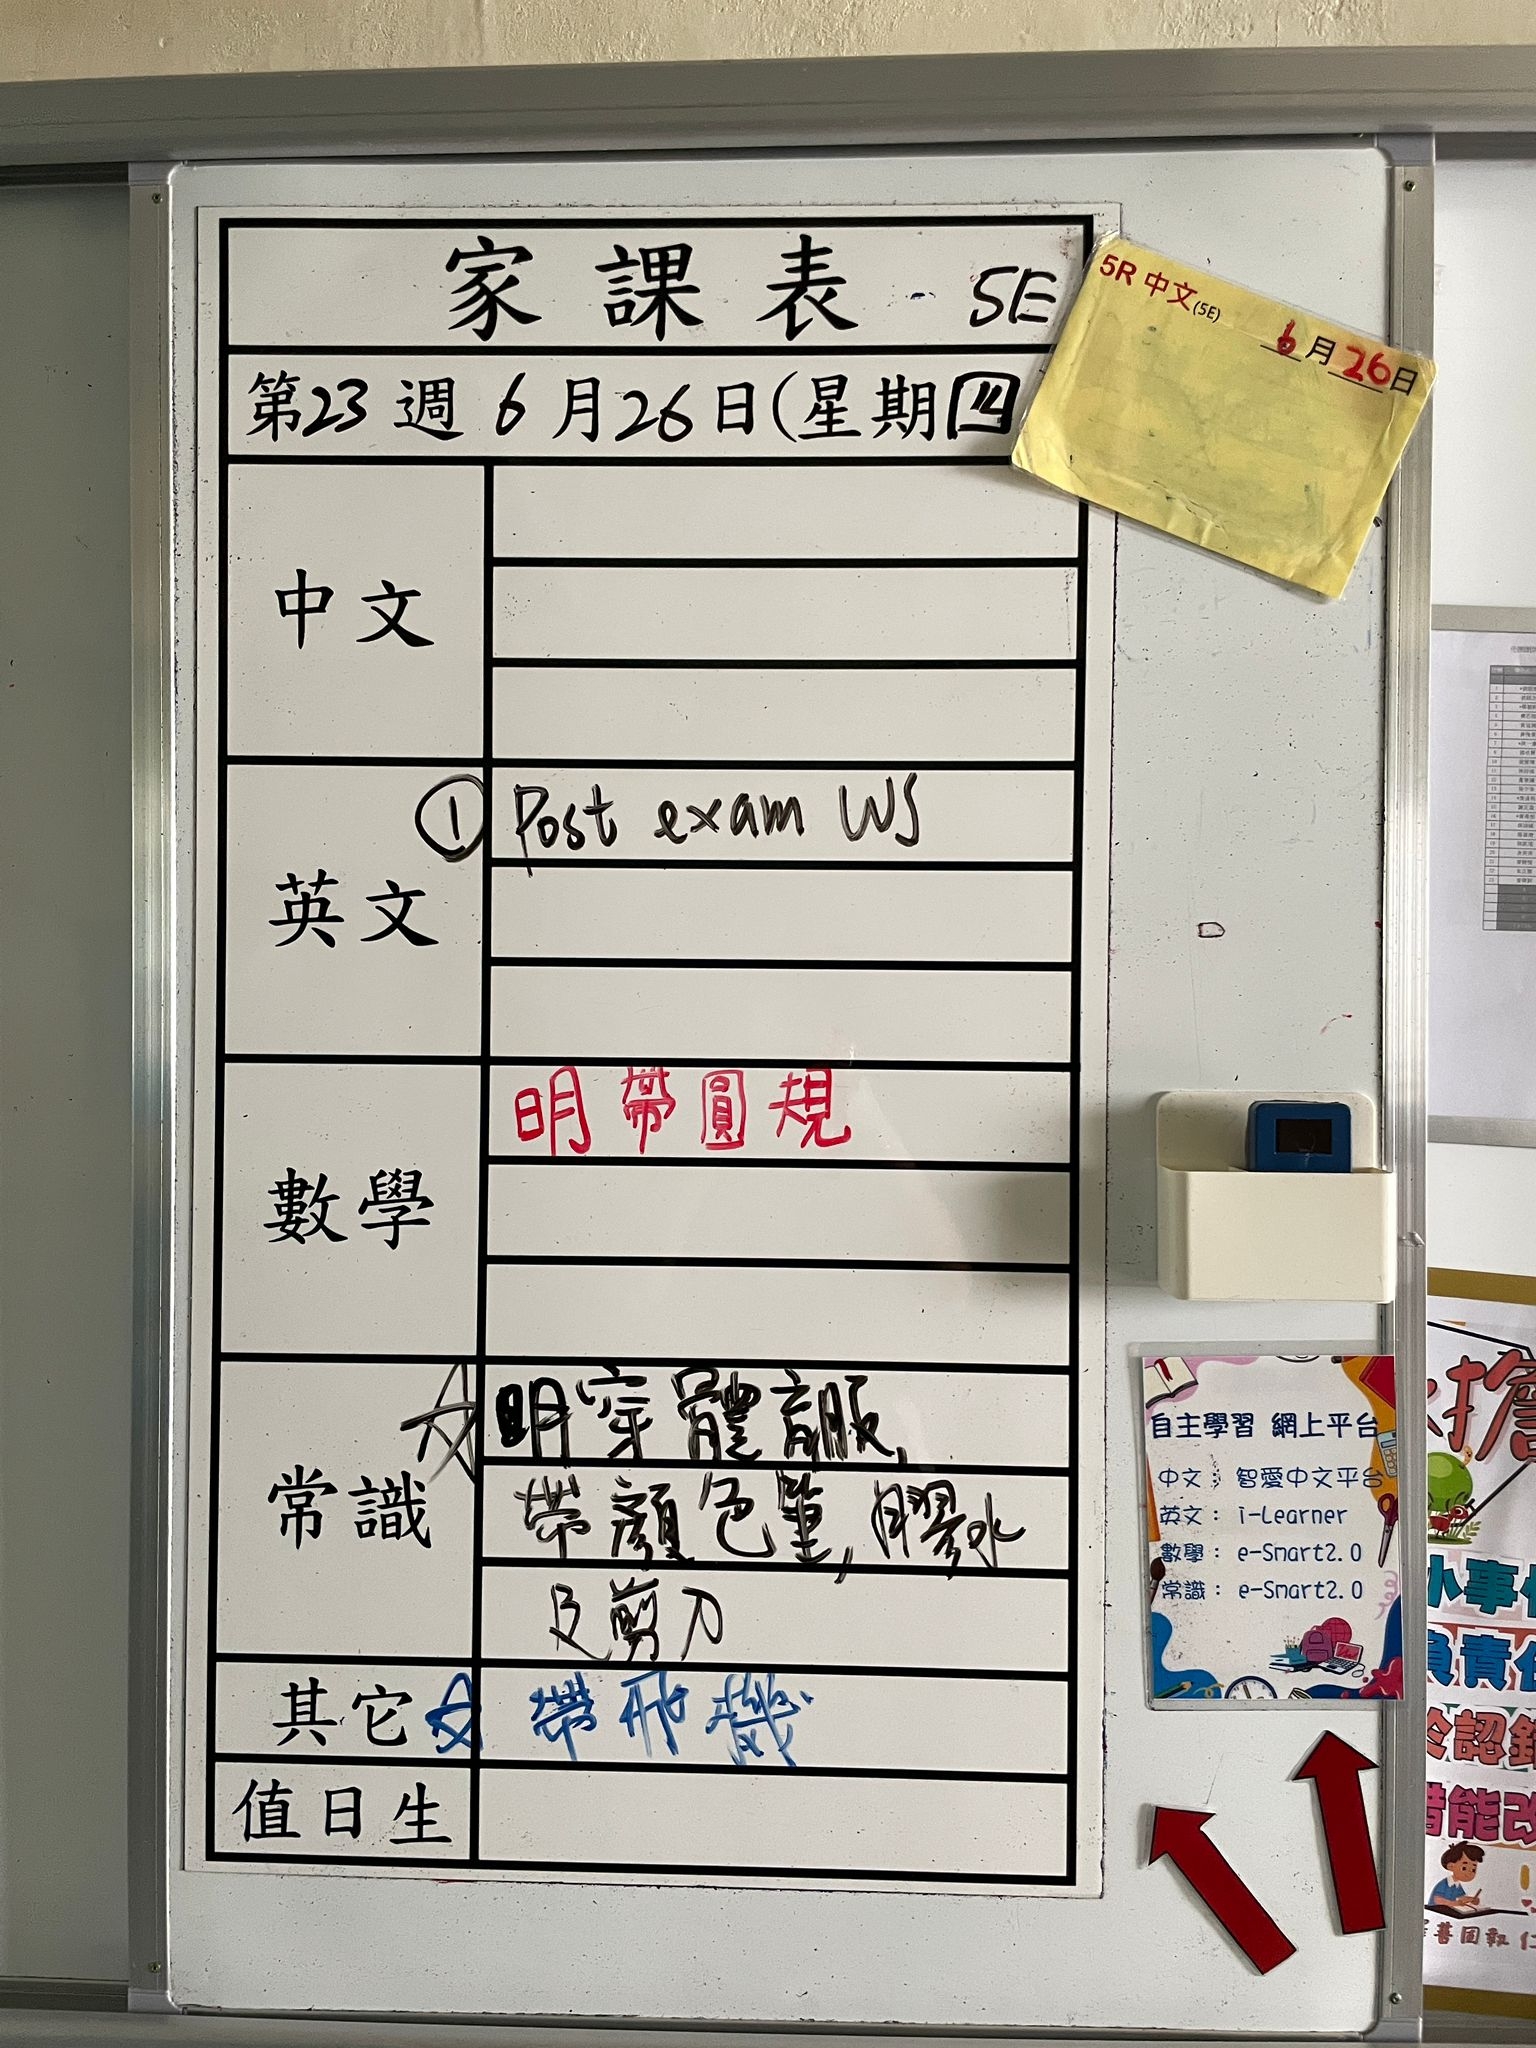 家課表 5E
第23週6月26日(星期四
5R 中文(5E)
6月26日
中文
英文
① Post exam WS
數學
明帶圓規
常識
☆ 明穿體育服,
帶顏色筆,膠水
及剪刀
其它
☆ 帶飛機
值日生
自主學習 網上平台
中文： 智愛中文平台
英文： i-Learner
數學： e-Smart2.0
常識： e-Smart2.0
小事
負責任
認錯
能改